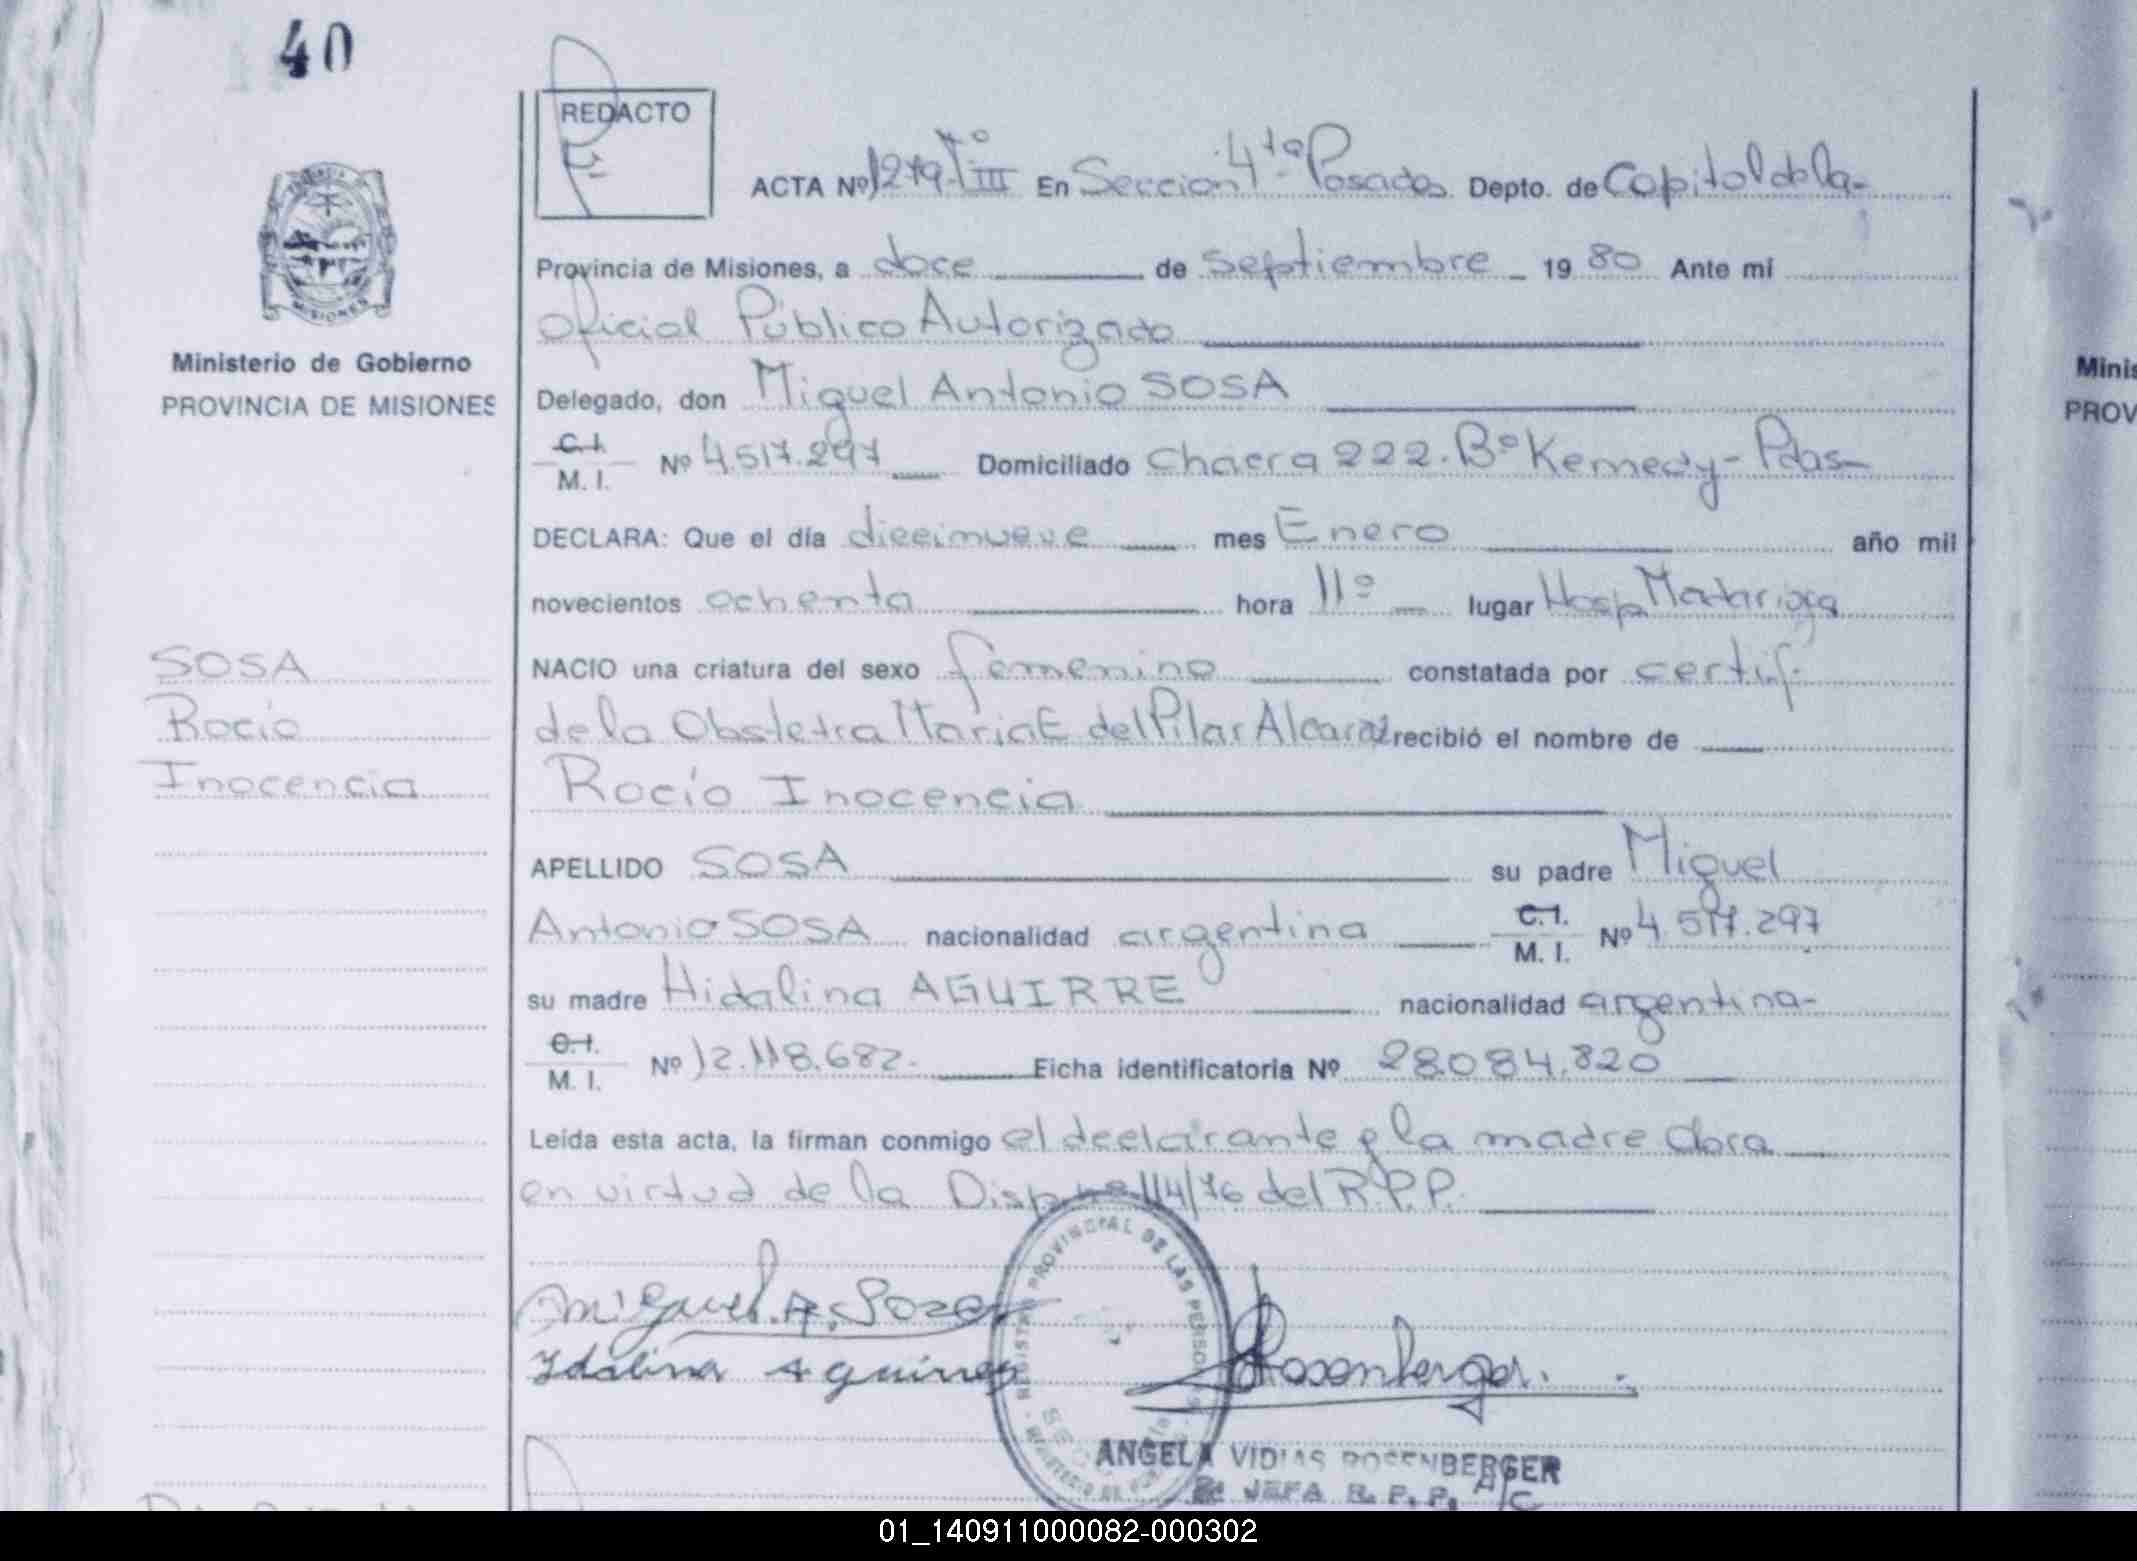 40
REDACTO
ACTA Nº 1279. Tº III En Sección 4ta Posadas Depto. de Capital de la-
Provincia de Misiones, a doce de septiembre 19 80 Ante mí
Oficial Público Autorizado
Ministerio de Gobierno
PROVINCIA DE MISIONES
Delegado, don Miguel Antonio SOSA
C.I.
M. I. Nº 4.517.297 Domiciliado Chacra 222. Bº Kennedy - Pdas-
DECLARA: Que el día diecinueve mes Enero año mil
novecientos ochenta hora 11º lugar Hosp Madariaga
SOSA
Rocío
Inocencia
NACIO una criatura del sexo femenino constatada por certif.
de la Obstetra Maria E del Pilar Alcaraz recibió el nombre de
Rocío Inocencia
APELLIDO SOSA su padre Miguel
Antonio SOSA nacionalidad argentina C.I. M. I. Nº 4.517.297
su madre Hidalina AGUIRRE nacionalidad argentina-
C.I.
M. I. Nº 12.118.682. Ficha identificatoria Nº 28.084.820
Leída esta acta, la firman conmigo el declarante y la madre
en virtud de la Disp. nº 114/76 del R.P.P.
Miguel. A. Soza
Ydalina Aguirre
Rosenberger.
REGISTRO PROVINCIAL DE LAS PERSONAS
ANGELA VIDIAS ROSENBERGER
2ª JEFA R. P. P. A/C
Minis
PROV
01_140911000082-000302